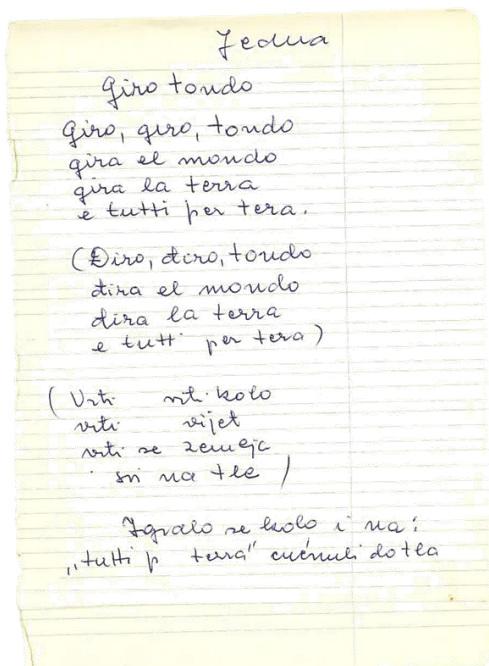 Jedna
Giro tondo
Giro, giro, tondo
gira el mondo
gira la terra
e tutti per tera.
(Điro, điro, tondo
đira el mondo
đira la terra
e tutti per tera)
(Vrti vrti kolo
vrti svijet
vrti se zemlja
svi na tle)
Igralo se kolo i na:
„tutti p terra" čučnuli do tla